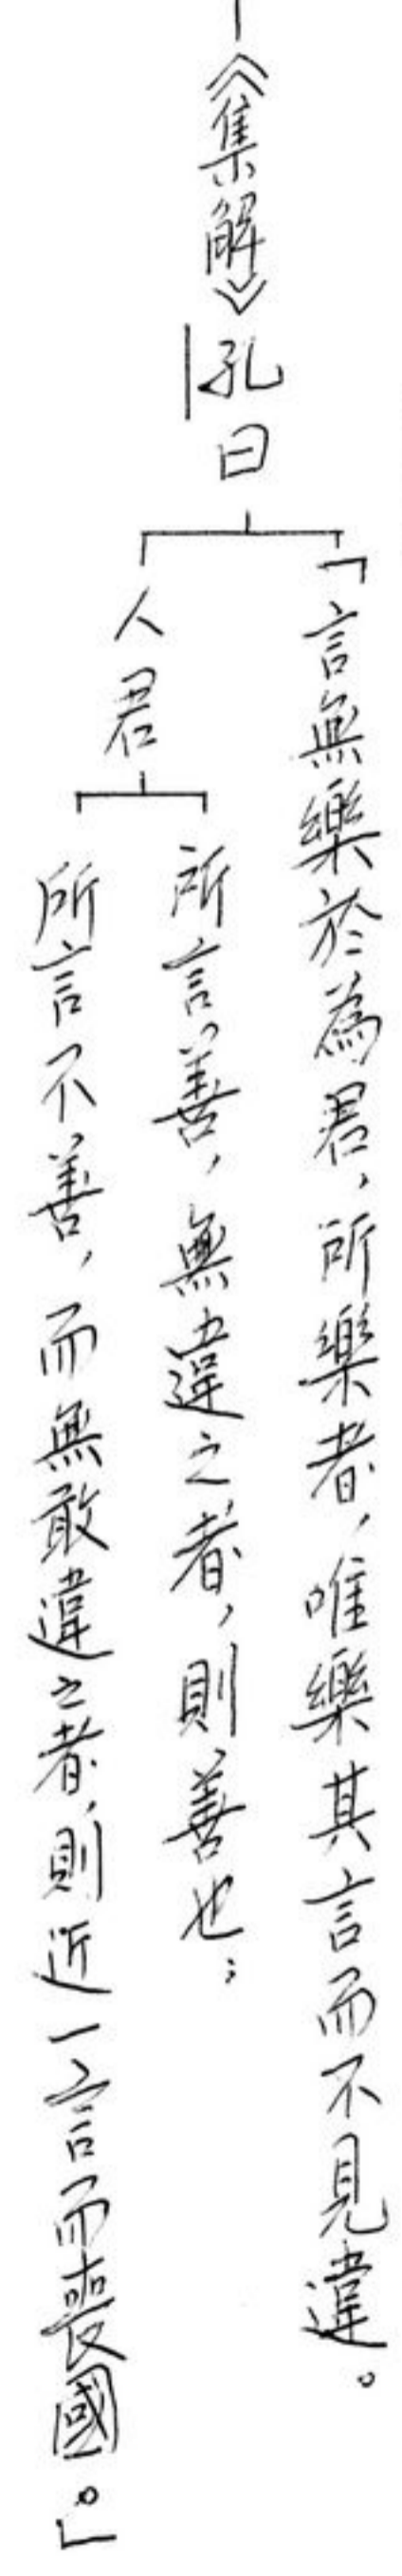 《集解》孔曰
「言無樂於為君，所樂者，唯樂其言而不見違。
人君
所言善，無違之者，則善也；
所言不善，而無敢違之者，則近一言而喪國。」